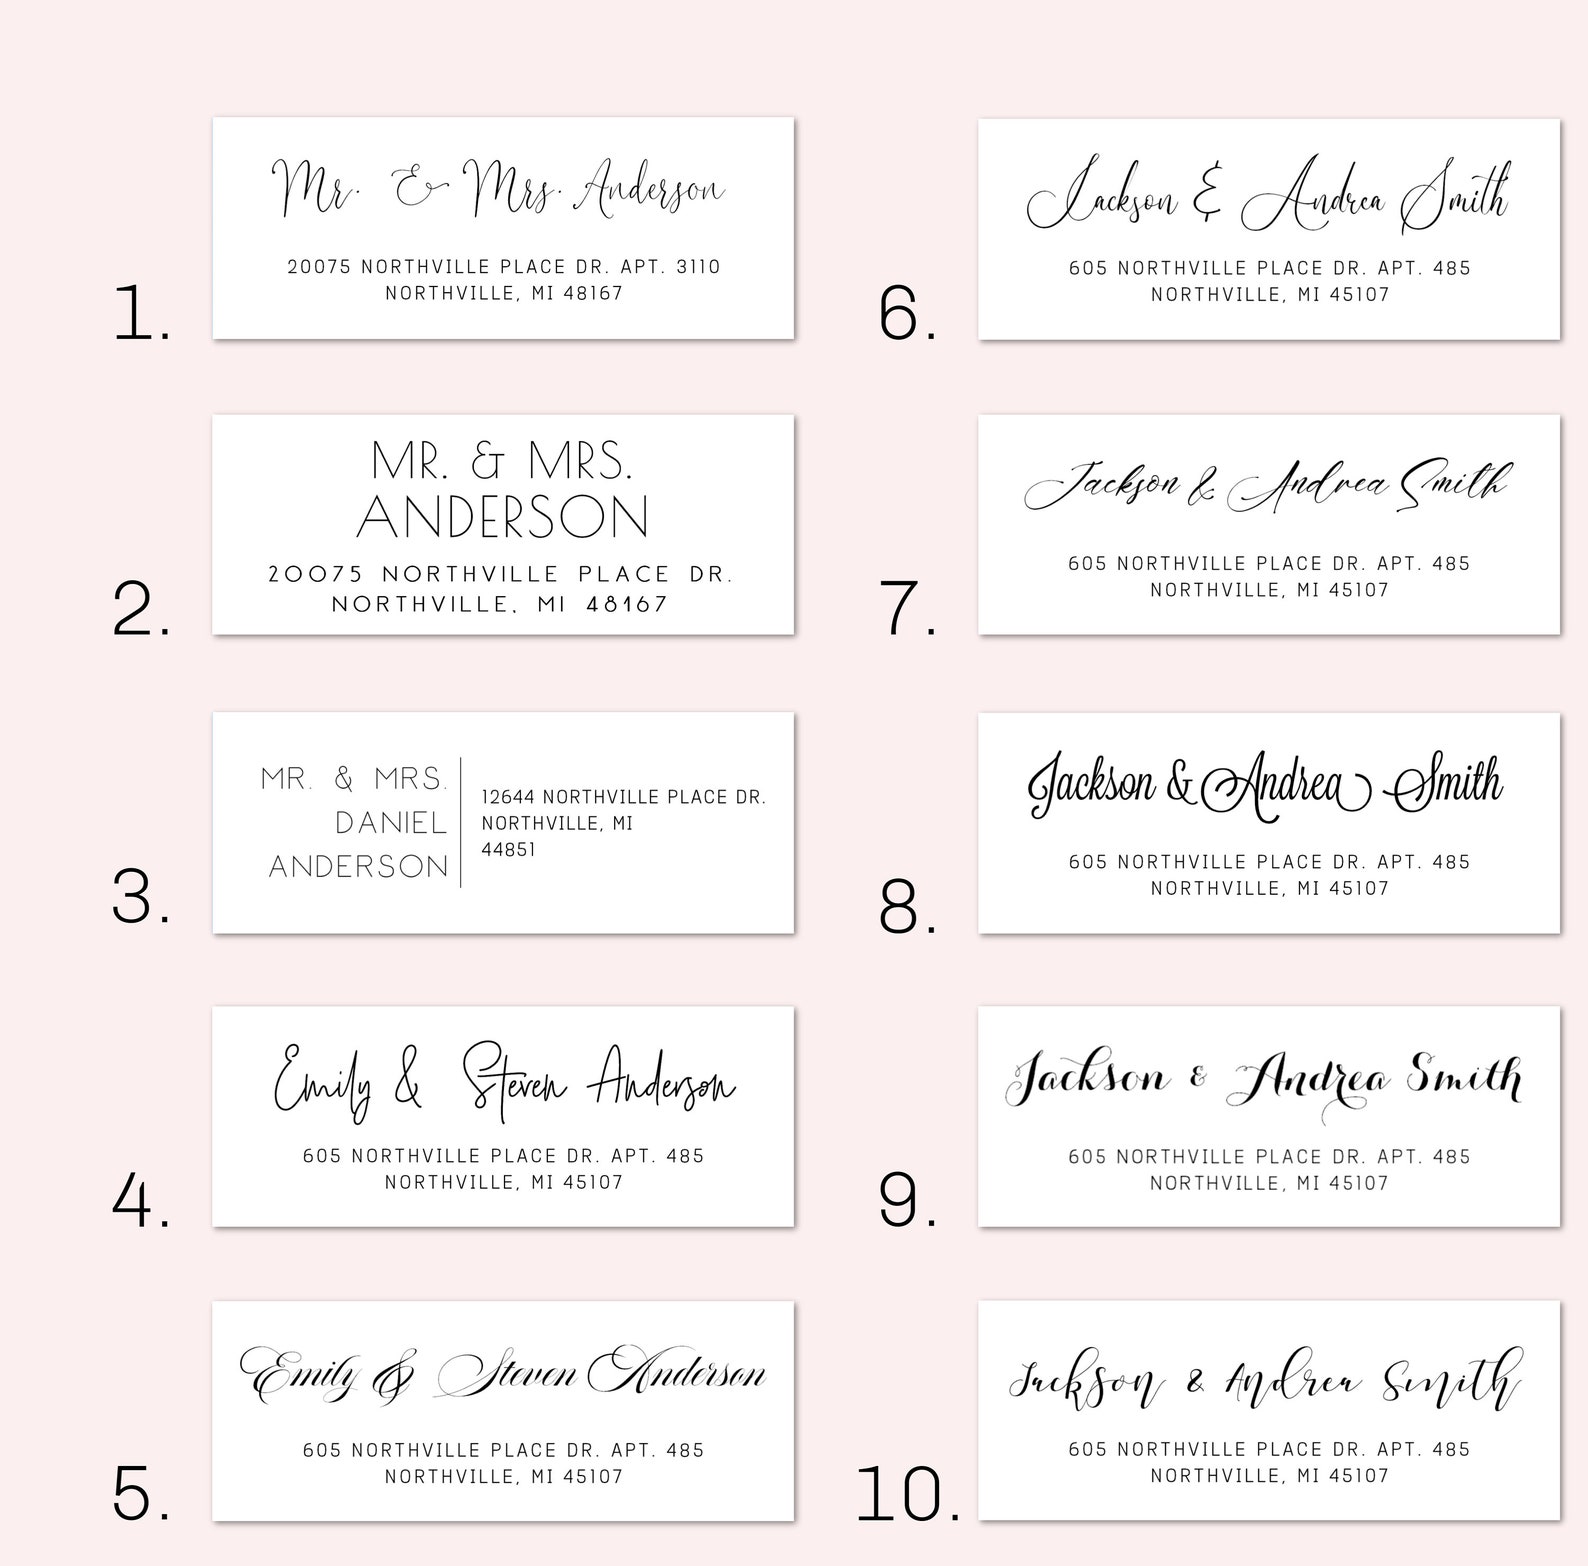 1.
Mr. & Mrs. Anderson
20075 NORTHVILLE PLACE DR. APT. 3110
NORTHVILLE, MI 48167
2.
MR. & MRS.
ANDERSON
20075 NORTHVILLE PLACE DR.
NORTHVILLE, MI 48167
3.
MR. & MRS.
DANIEL
ANDERSON
12644 NORTHVILLE PLACE DR.
NORTHVILLE, MI
44851
4.
Emily & Steven Anderson
605 NORTHVILLE PLACE DR. APT. 485
NORTHVILLE, MI 45107
5.
Emily & Steven Anderson
605 NORTHVILLE PLACE DR. APT. 485
NORTHVILLE, MI 45107
6.
Jackson & Andrea Smith
605 NORTHVILLE PLACE DR. APT. 485
NORTHVILLE, MI 45107
7.
Jackson & Andrea Smith
605 NORTHVILLE PLACE DR. APT. 485
NORTHVILLE, MI 45107
8.
Jackson & Andrea Smith
605 NORTHVILLE PLACE DR. APT. 485
NORTHVILLE, MI 45107
9.
Jackson & Andrea Smith
605 NORTHVILLE PLACE DR. APT. 485
NORTHVILLE, MI 45107
10.
Jackson & Andrea Smith
605 NORTHVILLE PLACE DR. APT. 485
NORTHVILLE, MI 45107